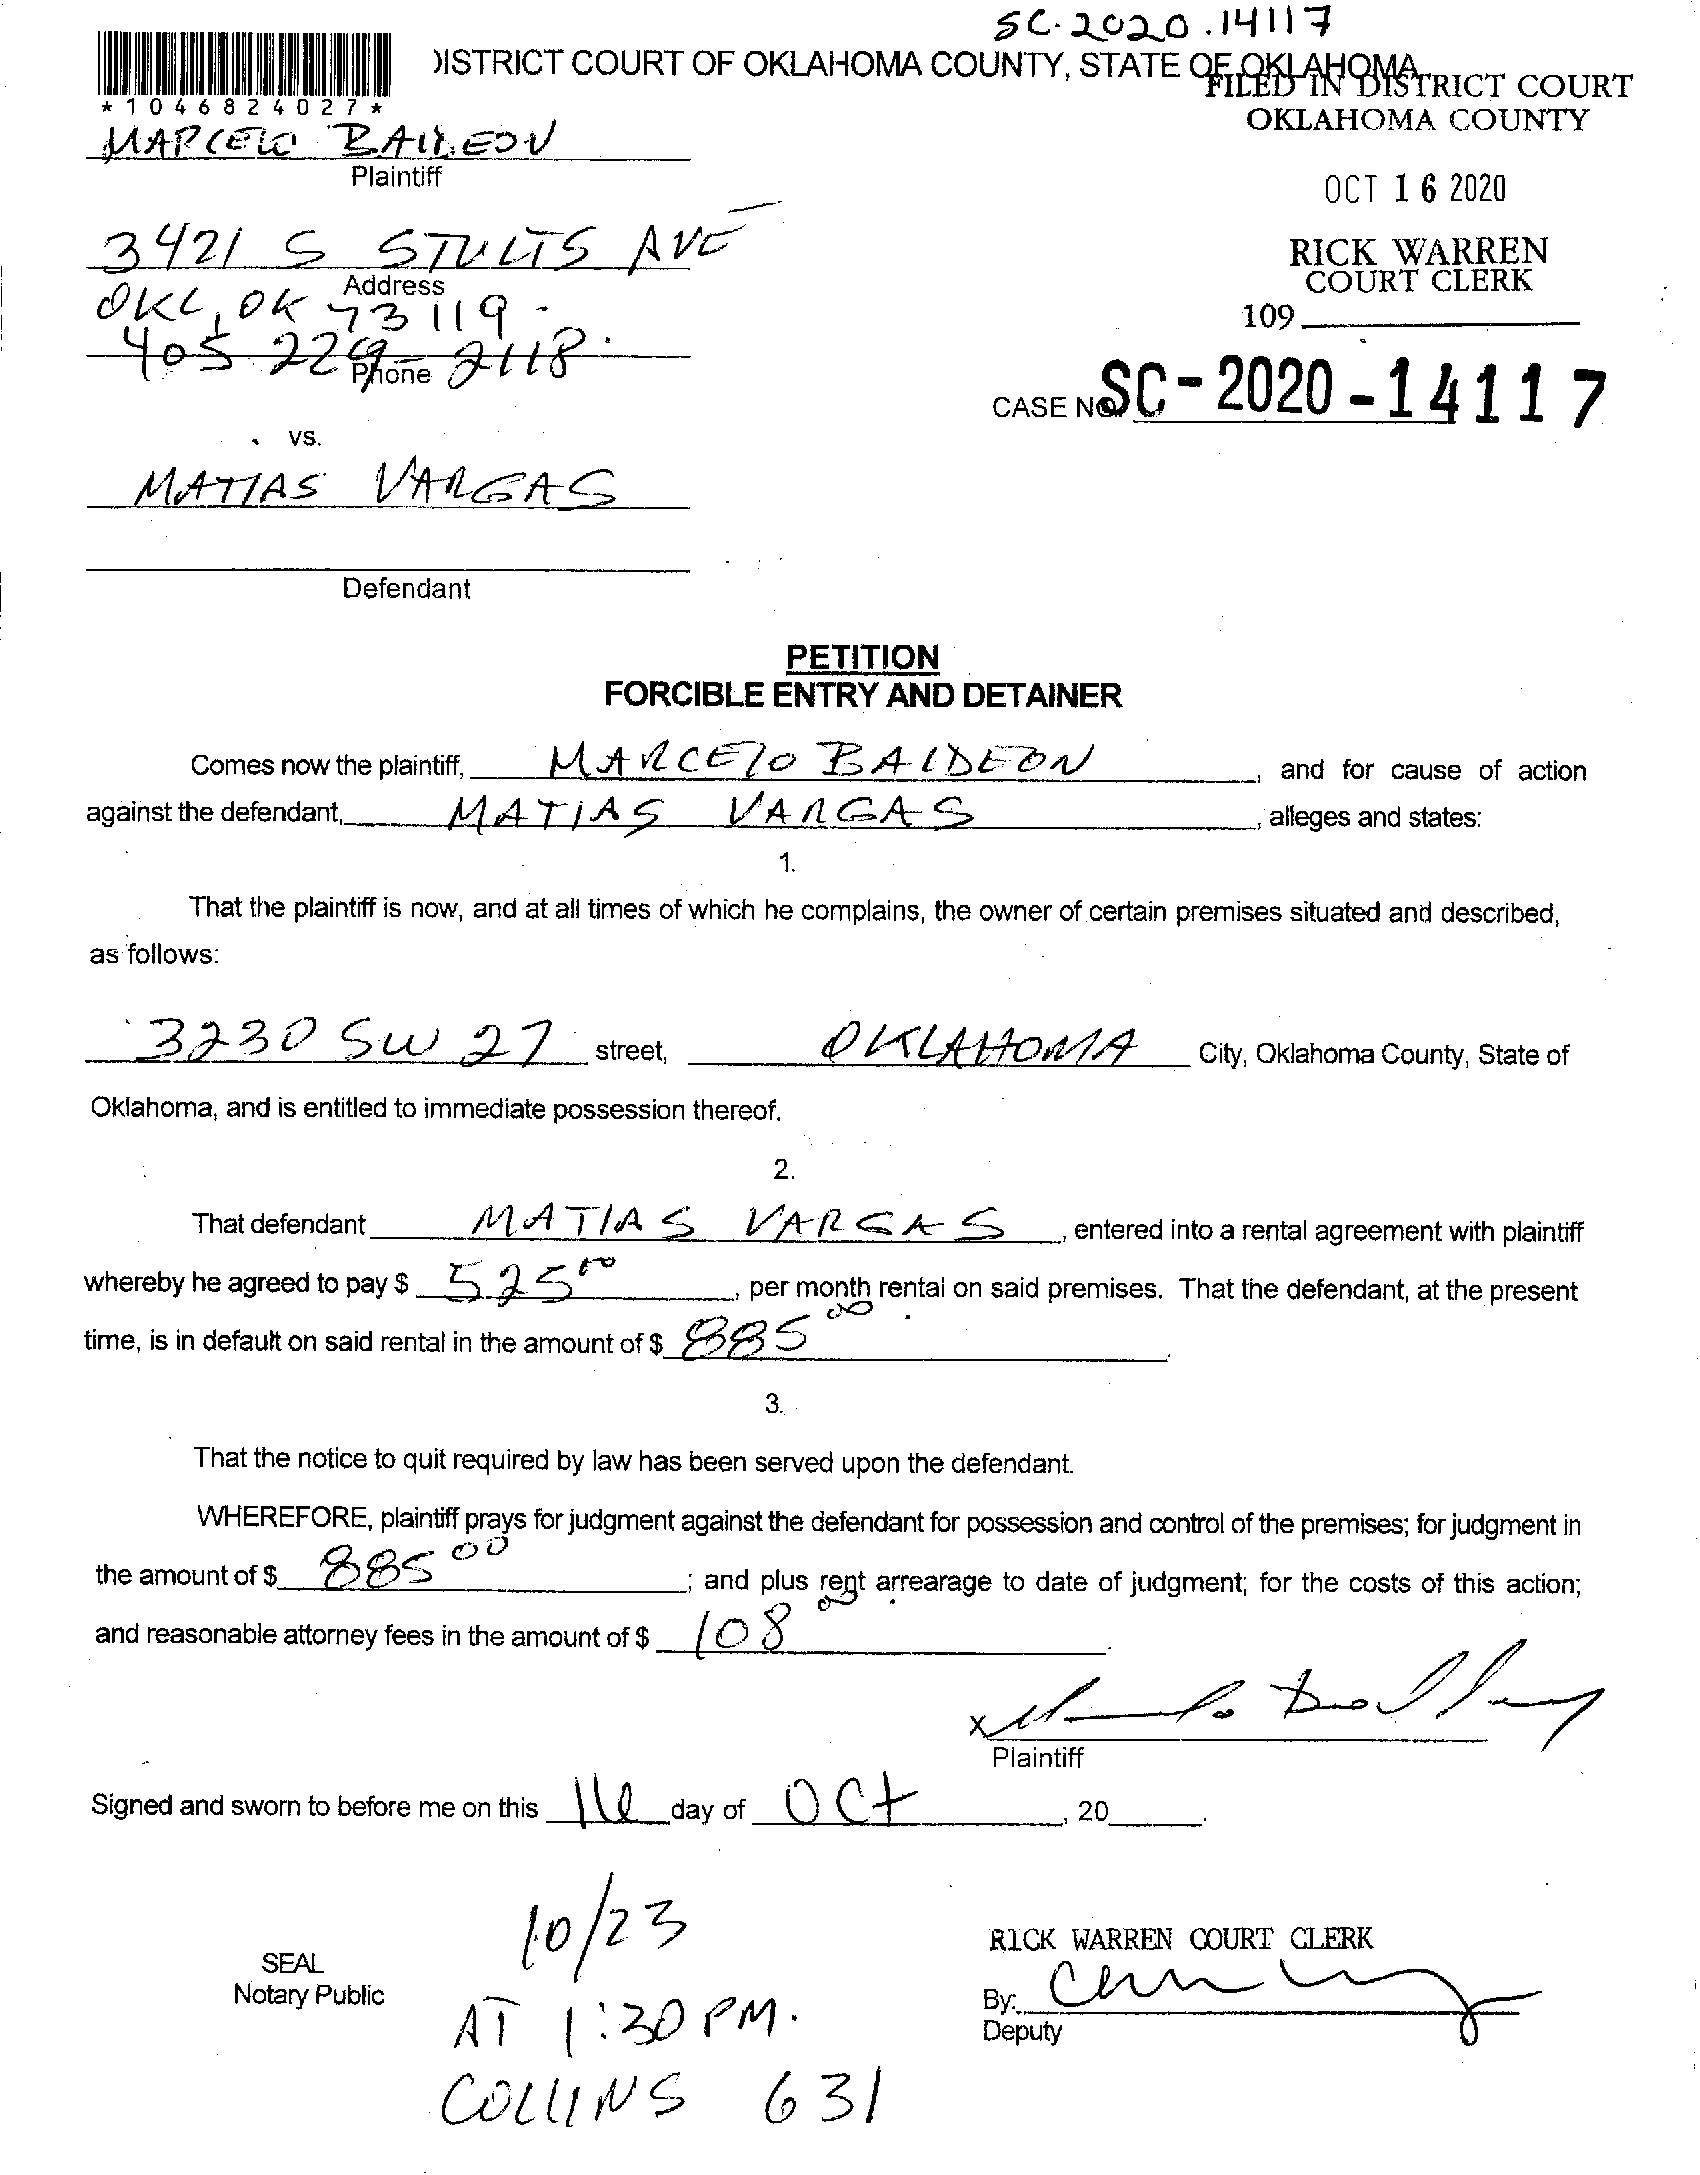 SC-2020-14117
DISTRICT COURT OF OKLAHOMA COUNTY, STATE OF OKLAHOMA
FILED IN DISTRICT COURT
OKLAHOMA COUNTY
*1046824027*
MARCELO BALDEON
Plaintiff
OCT 16 2020
3421 S STULTS AVE
Address
RICK WARREN
COURT CLERK
OKC, OK 73119.
109
405 229-2118.
Phone
CASE NO. SC-2020-14117
vs.
MATIAS VARGAS
Defendant
PETITION
FORCIBLE ENTRY AND DETAINER
Comes now the plaintiff, MARCELO BALDEON, and for cause of action
against the defendant, MATIAS VARGAS, alleges and states:
1.
That the plaintiff is now, and at all times of which he complains, the owner of certain premises situated and described,
as follows:
3230 SW 27 street, OKLAHOMA City, Oklahoma County, State of
Oklahoma, and is entitled to immediate possession thereof.
2.
That defendant MATIAS VARGAS, entered into a rental agreement with plaintiff
whereby he agreed to pay $ 525 00, per month rental on said premises. That the defendant, at the present
time, is in default on said rental in the amount of $ 885 00.
3.
That the notice to quit required by law has been served upon the defendant.
WHEREFORE, plaintiff prays for judgment against the defendant for possession and control of the premises; for judgment in
the amount of $ 885 00; and plus rent arrearage to date of judgment; for the costs of this action;
and reasonable attorney fees in the amount of $ 108 00.
x
Plaintiff
Signed and sworn to before me on this 16 day of Oct, 20
10/23
SEAL
Notary Public
RICK WARREN COURT CLERK
AT 1:30 PM.
By:
Deputy
COLLINS 631